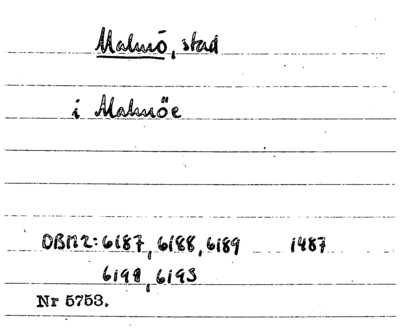 Malmö, stad
i Malmöe
DBM2: 6187, 6188, 6189 1487
6192, 6193
Nr 5753.